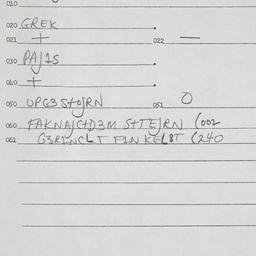 010
020 GREK .
021 + 022 —
030 PAJ1S .
040 + .
050 UPG3S+OJRN 051 O
060 FAKNAJC+D3M S+TEJRN (002
061 G3RINCLT FINKEL8T (240